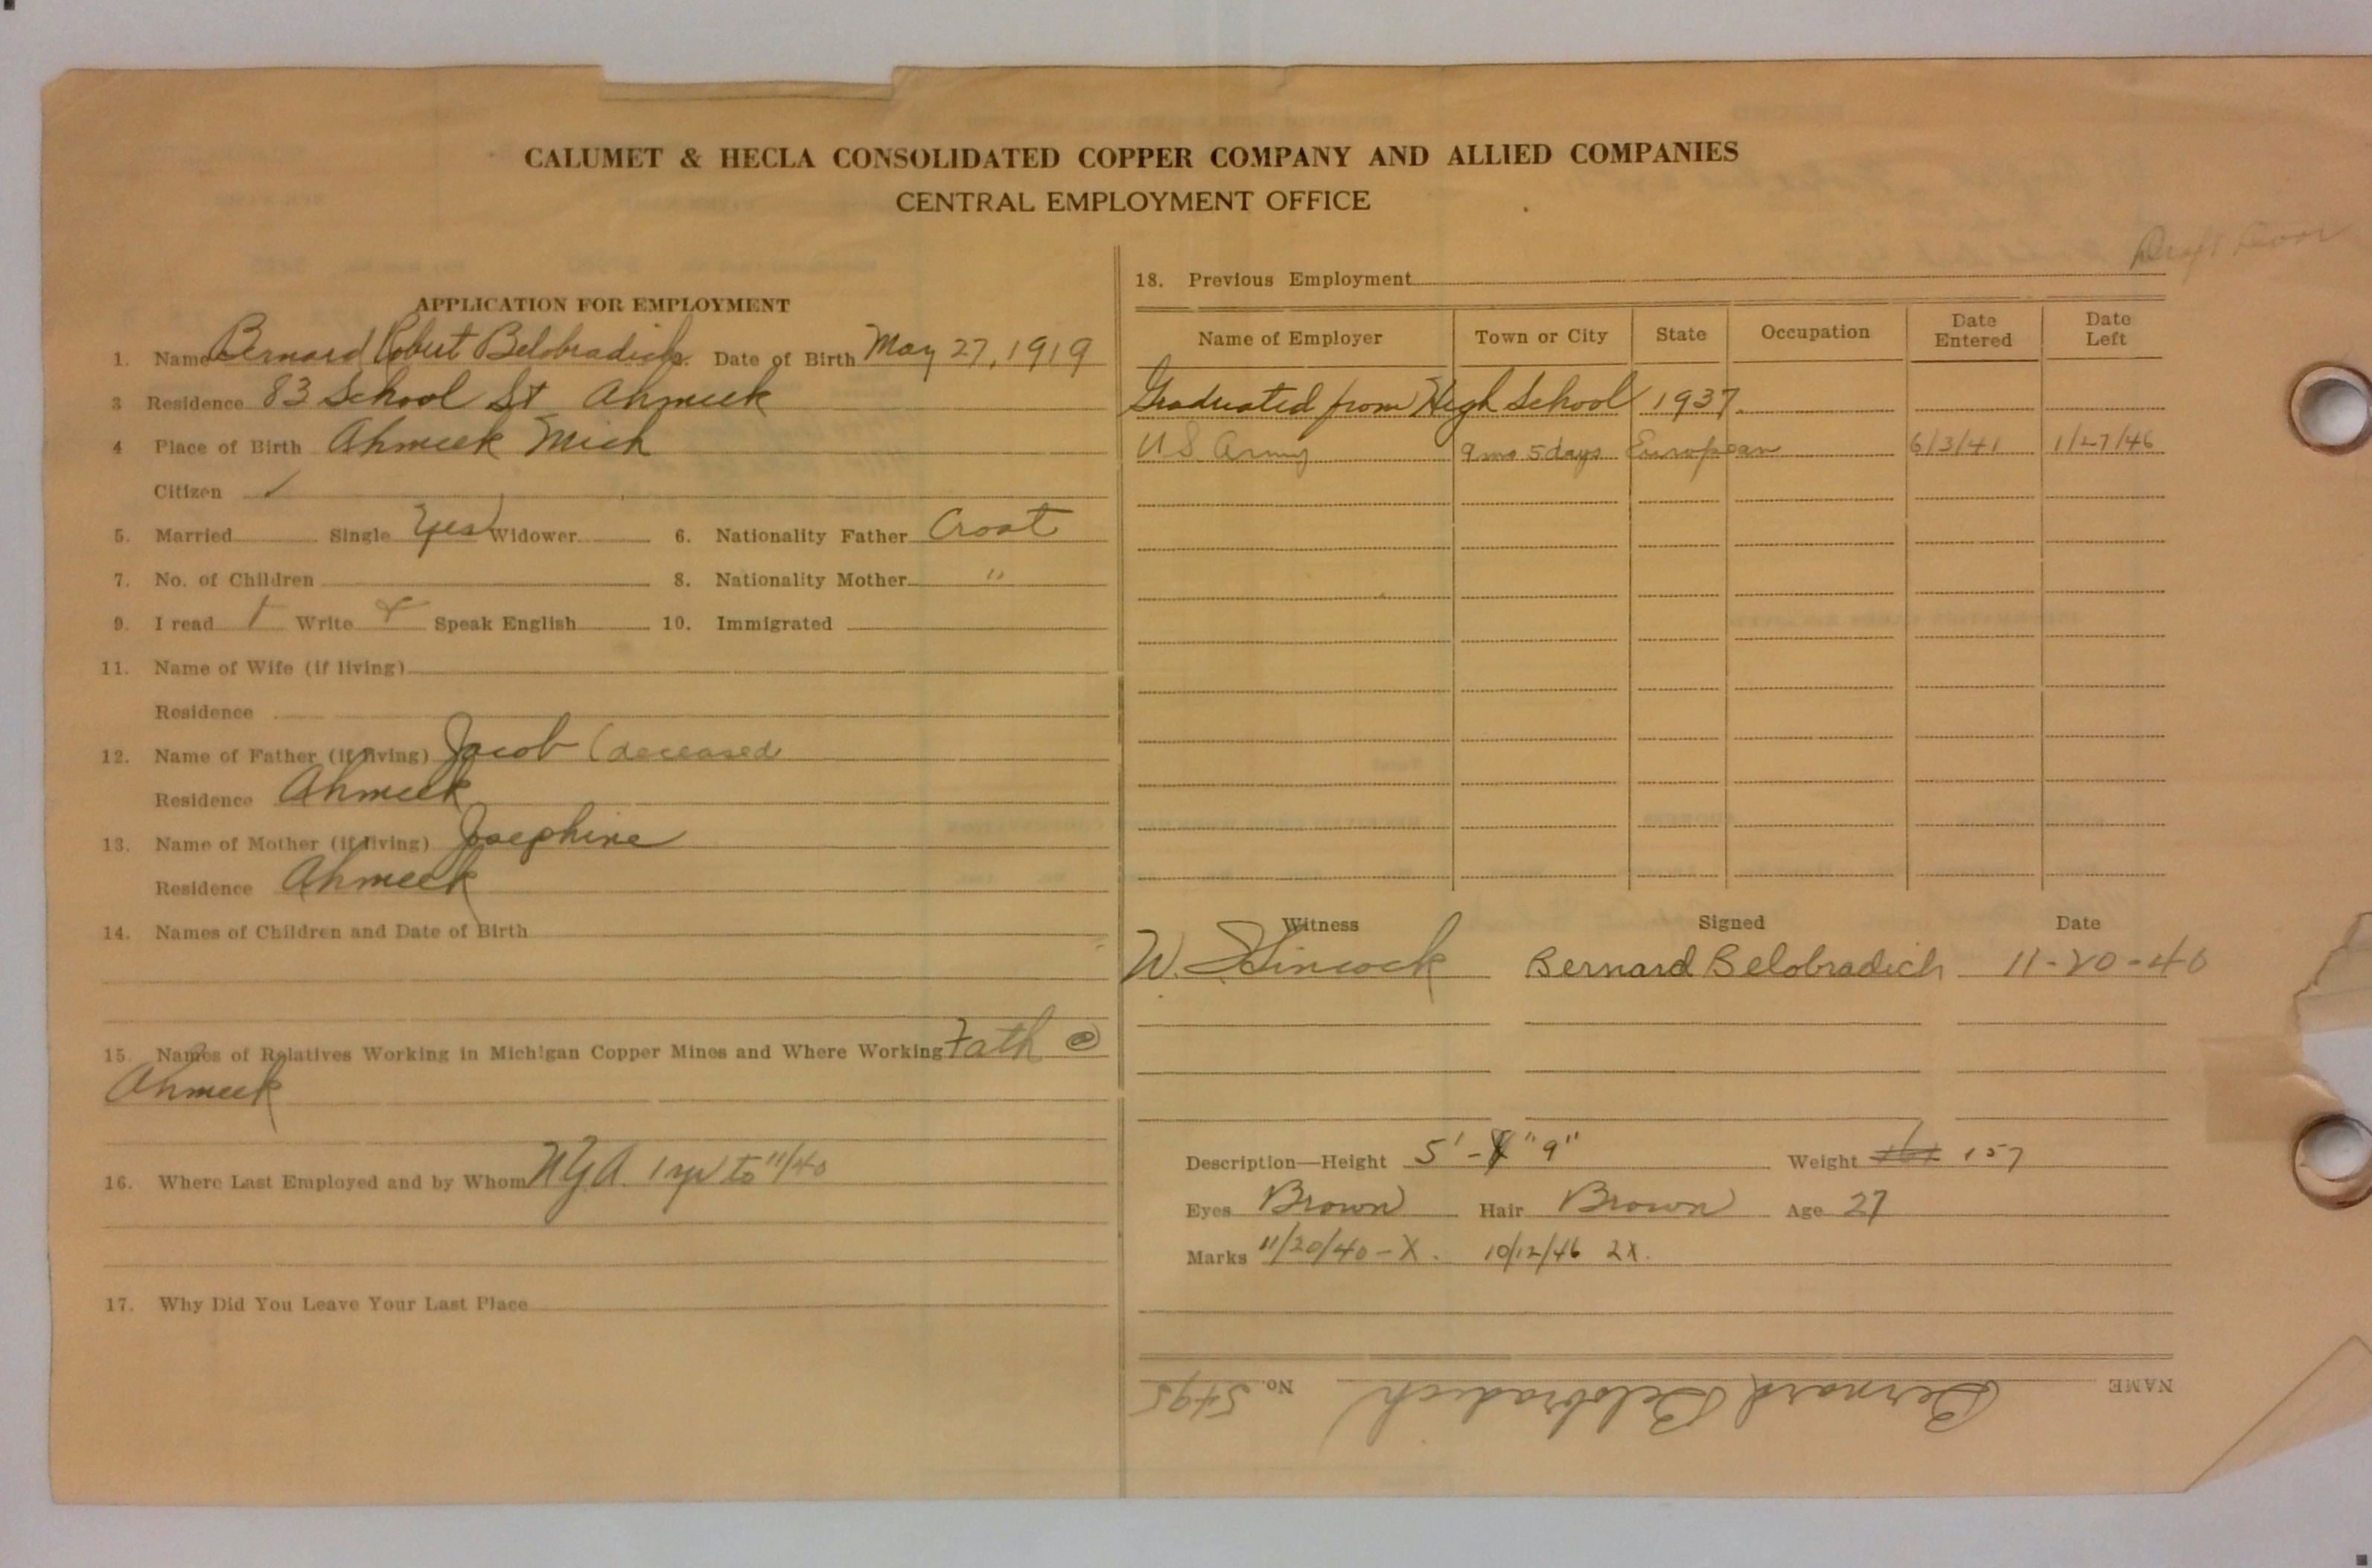 CALUMET & HECLA CONSOLIDATED COPPER COMPANY AND ALLIED COMPANIES
CENTRAL EMPLOYMENT OFFICE
APPLICATION FOR EMPLOYMENT
1. Name Bernard Robert Belobradich Date of Birth May 27, 1919
3 Residence 83 School St Ahmeek
4 Place of Birth Ahmeek Mich
Citizen ✓
5. Married Single Yes Widower 6. Nationality Father Croat
7. No. of Children 8. Nationality Mother "
9. I read Write Speak English 10. Immigrated
11. Name of Wife (if living)
Residence
12. Name of Father (if living) Jacob (deceased
Residence Ahmeek
13. Name of Mother (if living) Josephine
Residence Ahmeek
14. Names of Children and Date of Birth
15. Names of Relatives Working in Michigan Copper Mines and Where Working Fath @
Ahmeek
16. Where Last Employed and by Whom NYA. 1 yr to 11/40
17. Why Did You Leave Your Last Place
Draft
18. Previous Employment
Name of Employer Town or City State Occupation Date Entered Date Left
Graduated from High School 1937.
U.S. Army 9 mo 5 days European 6/3/41 1/27/46
Witness Signed Date
W. Hincock Bernard Belobradich 11-20-40
Description—Height 5'- " 9" Weight 157
Eyes Brown Hair Brown Age 27
Marks 11/20/40 - X. 10/12/46 2X.
NAME Bernard Belobradich No. 5495